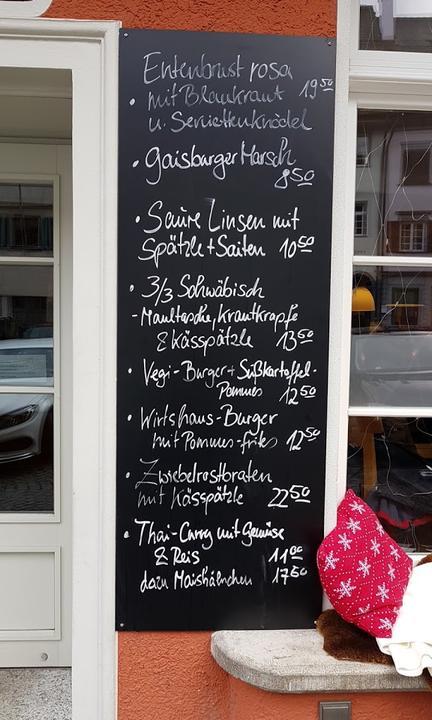 Entenbrust rosa
• mit Blaukraut 19 50
u. Serviettenknödel
• Gaisburger Marsch
8 50
• Saure Linsen mit
Spätzle + Saiten 10 50
• 3/3 Schwäbisch
- Maultasche, Krautkrapfe
& Kässpätzle 13 50
• Vegi-Burger + Süßkartoffel-
Pommes 12 50
• Wirtshaus-Burger
mit Pommes-frites 12 50
• Zwiebelrostbraten
mit Kässpätzle 22 50
• Thai-Curry mit Gemüse
& Reis 11 00
dazu Maishähnchen 17 50